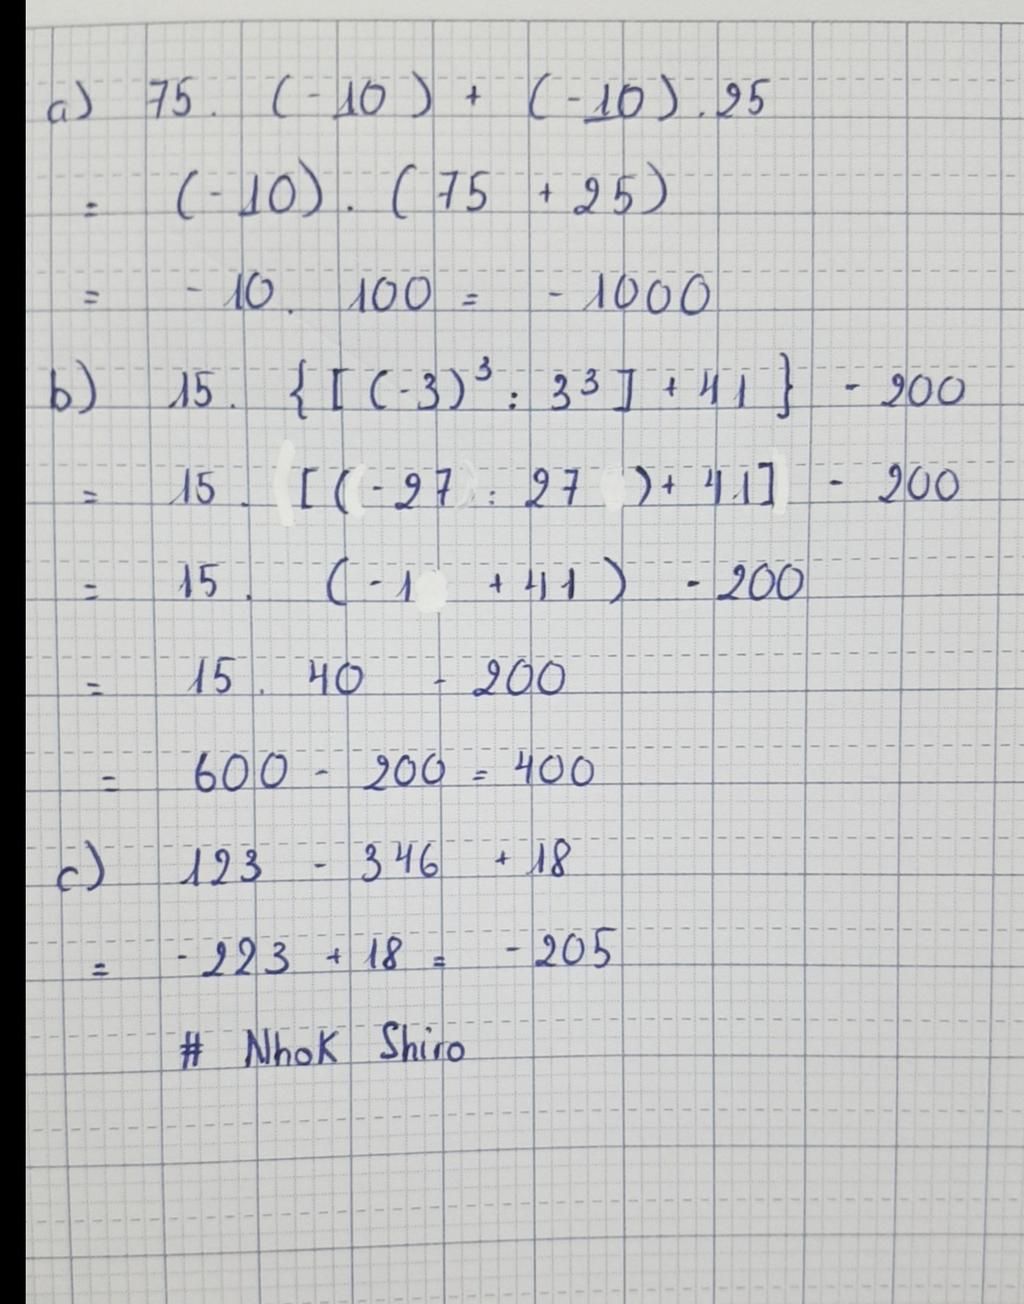 a) 75. (-10) + (-10).25
= (-10). (75 + 25)
= -10. 100 = -1000
b) 15. {[(-3)³: 3³] + 41} - 200
= 15. [(-27 : 27) + 41] - 200
= 15. (-1 + 41) - 200
= 15. 40 - 200
= 600 - 200 = 400
c) 123 - 346 + 18
= -223 + 18 = -205
# Nhok Shiro